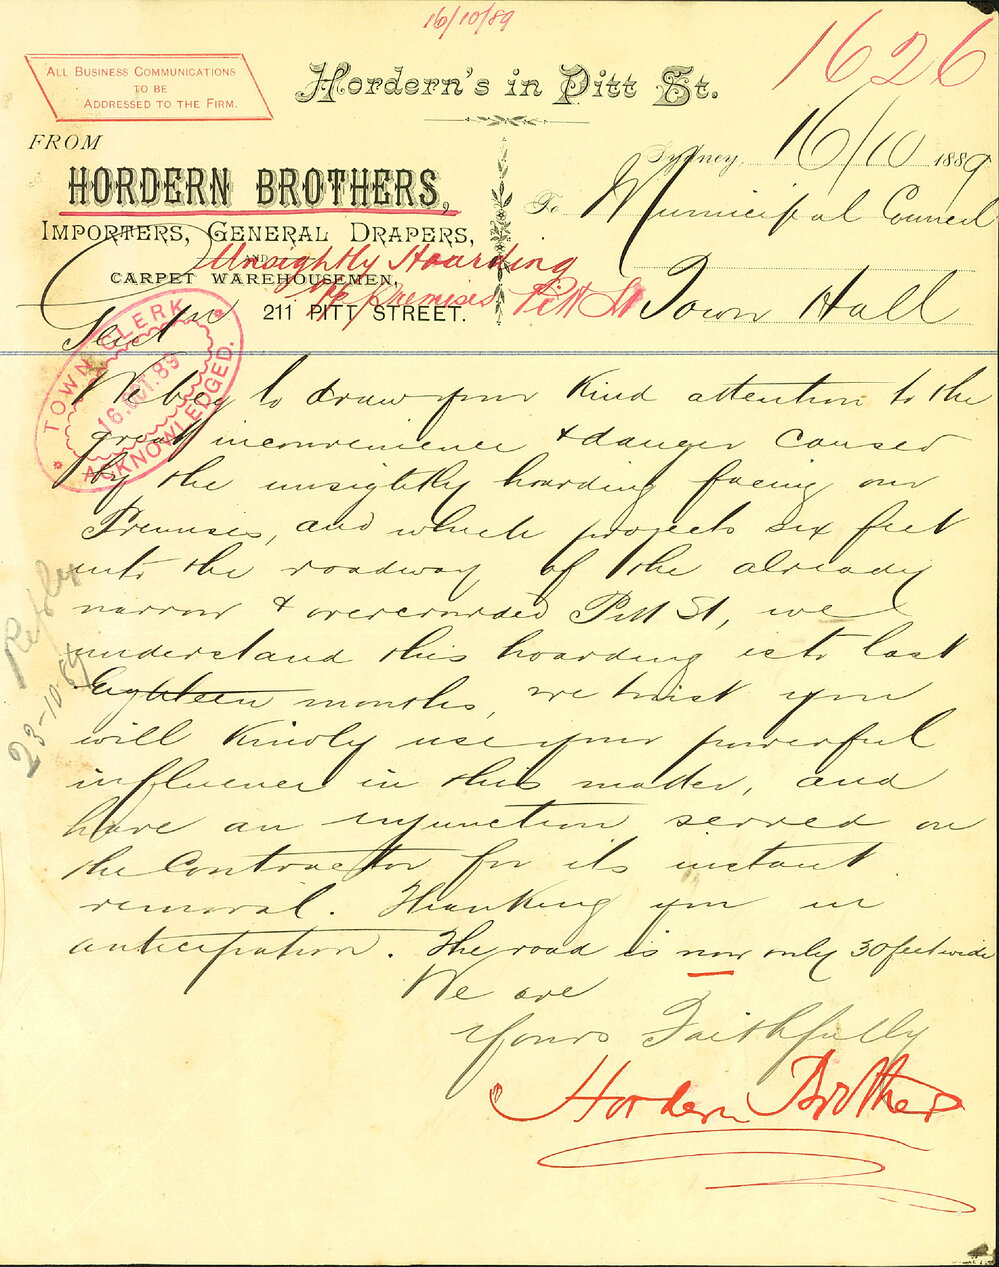 16/10/89
1626
ALL BUSINESS COMMUNICATIONS
TO BE
ADDRESSED TO THE FIRM.
Hordern's in Pitt St.
FROM
HORDERN BROTHERS,
IMPORTERS, GENERAL DRAPERS,
AND
CARPET WAREHOUSEMEN,
211 PITT STREET.
Sydney, 16/10 1889
To Municipal Council
Town Hall
Unsightly Hoarding
Opp premises Pitt St
TOWN CLERK
16.OCT.89
ACKNOWLEDGED.
Gentn
We beg to draw your kind attention to the
great inconvenience & danger caused
by the unsightly hoarding facing our
Premises, and which projects six feet
into the roadway of the already
narrow & overcrowded Pitt St, we
understand this hoarding is to last
Eighteen months, we trust you
will kindly use your powerful
influence in this matter, and
have an injunction served on
the Contractor for its instant
removal. Thanking you in
anticipation. The road is now only 30 feet wide
We are
Yours Faithfully
Hordern Brothers
23-10-89